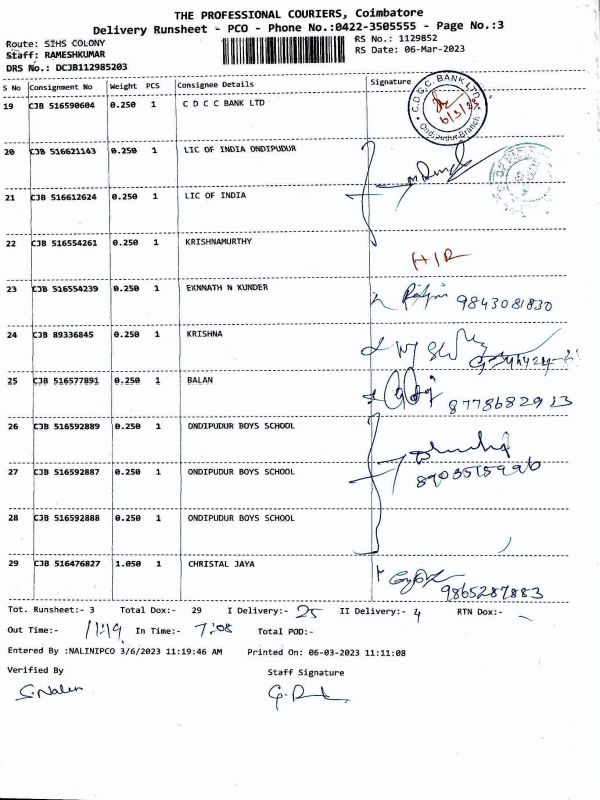 THE PROFESSIONAL COURIERS, Coimbatore
Delivery Runsheet - PCO - Phone No.:0422-3505555 - Page No.:3
Route: SIHS COLONY
RS No.: 1129852
Staff: RAMESHKUMAR
RS Date: 06-Mar-2023
DRS No.: DCJB112985203
S No Consignment No Weight PCS Consignee Details Signature
19 CJB 516590604 0.250 1 C D C C BANK LTD
C.D.C.C. BANK LTD.
6/3/23
Ondipudur Branch
20 CJB 516621143 0.250 1 LIC OF INDIA ONDIPUDUR
21 CJB 516612624 0.250 1 LIC OF INDIA
22 CJB 516554261 0.250 1 KRISHNAMURTHY
23 CJB 516554239 0.250 1 EKNNATH N KUNDER 9843081830
24 CJB 89336845 0.250 1 KRISHNA
25 CJB 516577891 0.250 1 BALAN 8778682913
26 CJB 516592889 0.250 1 ONDIPUDUR BOYS SCHOOL
27 CJB 516592887 0.250 1 ONDIPUDUR BOYS SCHOOL
28 CJB 516592888 0.250 1 ONDIPUDUR BOYS SCHOOL
29 CJB 516476827 1.050 1 CHRISTAL JAYA 9865287883
Tot. Runsheet:- 3 Total Dox:- 29 I Delivery:- 25 II Delivery:- 4 RTN Dox:-
Out Time:- 11:19 In Time:- 7:08 Total POD:-
Entered By :NALINIPCO 3/6/2023 11:19:46 AM Printed On: 06-03-2023 11:11:08
Verified By Staff Signature
S.Nalini